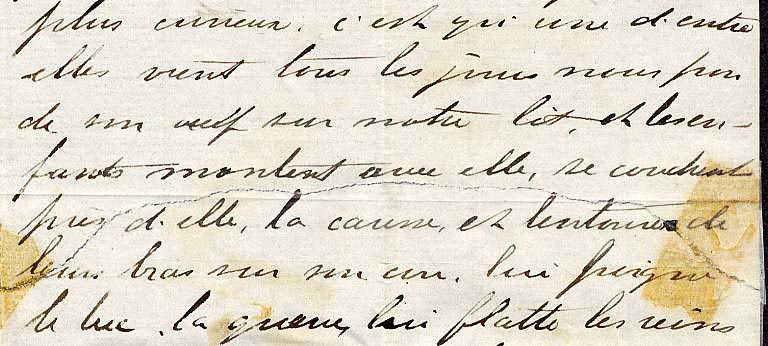 plus curieux, c'est qu'une d'entre
elles vient tous les jours nous pon
de son oeuf sur notre lit, et les en-
fants montent avec elle, se couchent
près d'elle, la caresse, et l'entoure de
leurs bras sur son cou, lui peigne
le bec, la queue, lui flatte les reins